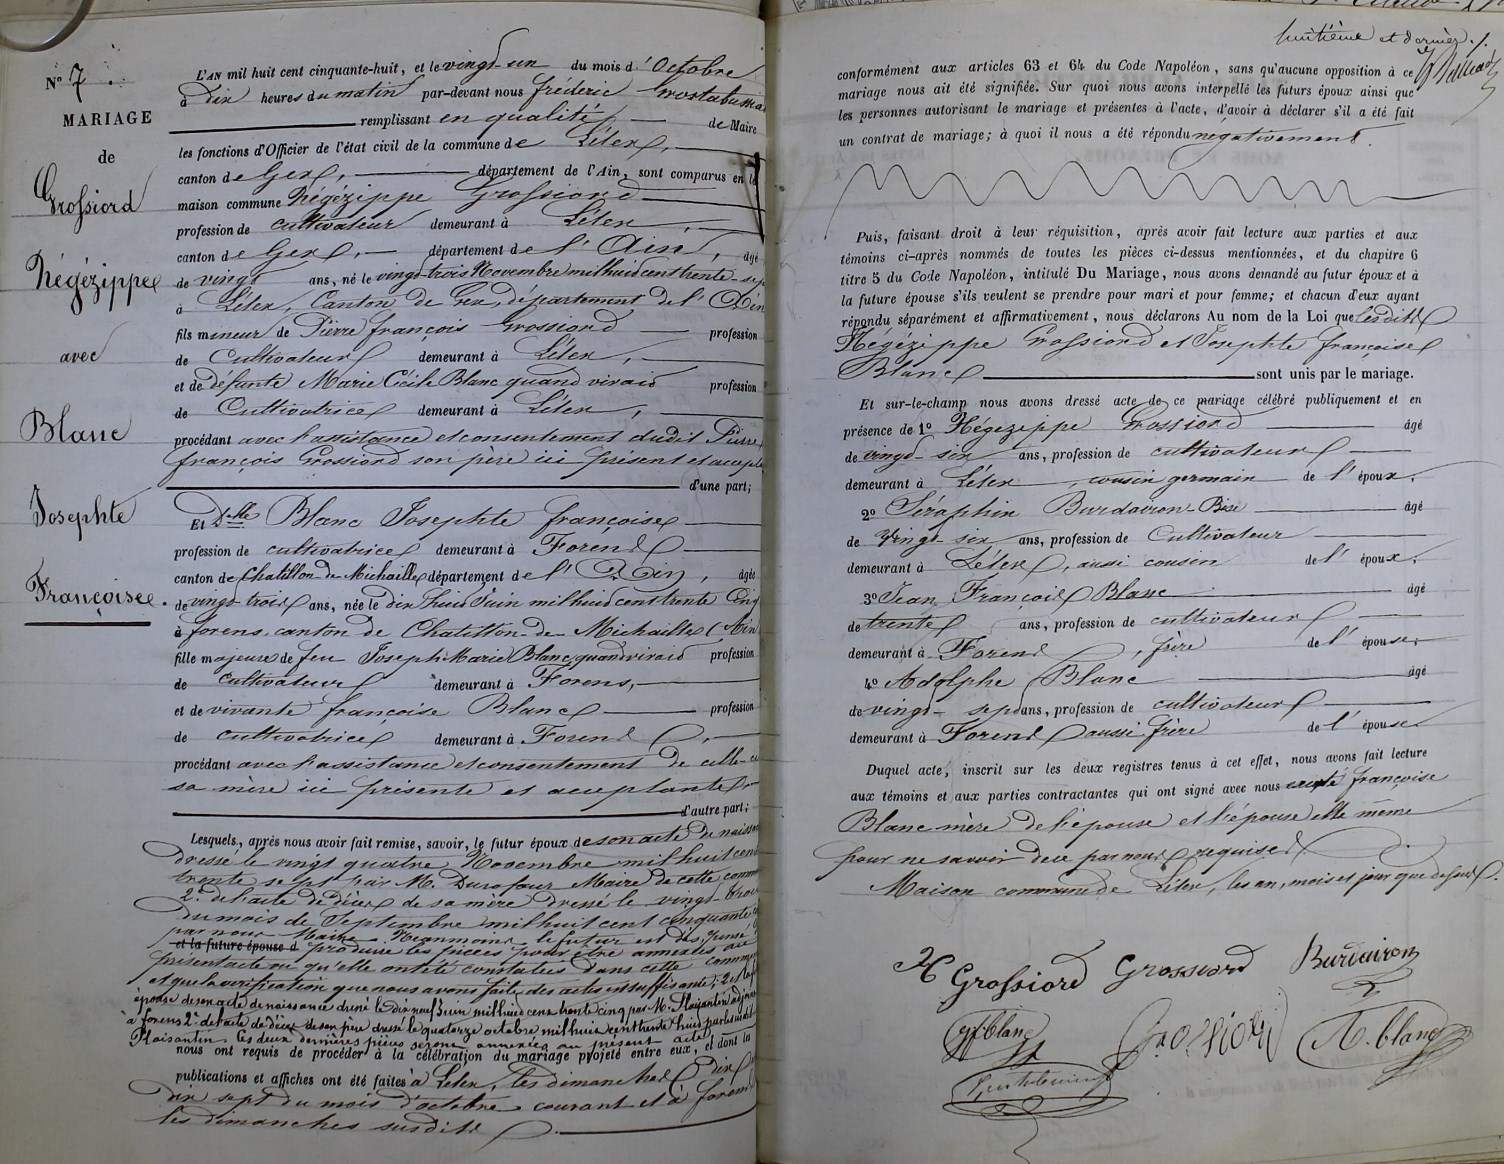 No 7
MARIAGE
de
Grossiord
Hégézippe
avec
Blanc
Josephte
Françoise.
L'AN mil huit cent cinquante-huit, et le vingt-un du mois d'Octobre
à dix heures du matin par-devant nous fréderic
remplissant en qualité de Maire
les fonctions d'Officier de l'état civil de la commune de Lélex,
canton de Gex, département de l'Ain, sont comparus en la
maison commune Hégézippe Grossiord
profession de cultivateur demeurant à Lélex,
canton de Gex, département de l'Ain, âgé
de vingt ans, né le vingt-trois Novembre mil huit cent trente-sept
à Lélex, Canton de Gex, département de l'Ain
fils mineur de Pierre françois Grossiord profession
de Cultivateur demeurant à Lélex,
et de défunte Marie Cécile Blanc quand vivait profession
de Cultivatrice demeurant à Lélex,
procédant avec l'assistance et consentement dudit Pierre
françois Grossiord son père ici présent et accept
d'une part;
Et Dlle Blanc Josephte françoise
profession de cultivatrice demeurant à Forens
canton de Chatillon de Michaille département de l'Ain, âgée
de vingt trois ans, née le dix huit Juin mil huit cent trente Cinq
à forens, canton de Chatillon-de-Michaille (Ain
fille majeure de feu Joseph Marie Blanc, quand vivait profession
de cultivateur demeurant à Forens,
et de vivante françoise Blanc profession
de cultivatrice demeurant à Forens,
procédant avec l'assistance et consentement de celle-ci
sa mère ici présente et acceptante,
d'autre part;
Lesquels, après nous avoir fait remise, savoir, le futur époux de son acte de naissan
dressé le vingt quatre Novembre mil huit cent
trente sept par M. Durafour Maire de cette comm
2° de l'acte de décès de sa mère dressé le vingt-trois
du mois de Septembre mil huit cent cinquante
par nous Maire. Néanmoins le futur est dispensé
et la future épouse d produire les pièces pour être annexées au
présent acte vu qu'elle ont été constatées dans cette commune
et que la vérification que nous avons faite des actes est suffisante; 2° la f
épouse de son acte de naissance dressé le dix neuf Juin mil huit cent trente cinq par M. Plaisantin adjoint
à forens 2° de l'acte de décès de son père dressé le quatorze octobre mil huit cent trente huit par le susdit
Plaisantin les deux dernières pièces seront annexées au présent acte,
nous ont requis de procéder à la célébration du mariage projeté entre eux, et dont la
publications et affiches ont été faites à Lélex, les dimanches dix
dix sept du mois d'octobre courant et à forens
les dimanches susdits
huitième et dernier ./.
conformément aux articles 63 et 64 du Code Napoléon, sans qu'aucune opposition à ce
mariage nous ait été signifiée. Sur quoi nous avons interpellé les futurs époux ainsi que
les personnes autorisant le mariage et présentes à l'acte, d'avoir à déclarer s'il a été fait
un contrat de mariage; à quoi il nous a été répondu négativement.
Puis, faisant droit à leur réquisition, après avoir fait lecture aux parties et aux
témoins ci-après nommés de toutes les pièces ci-dessus mentionnées, et du chapitre 6
titre 5 du Code Napoléon, intitulé Du Mariage, nous avons demandé au futur époux et à
la future épouse s'ils veulent se prendre pour mari et pour femme; et chacun d'eux ayant
répondu séparément et affirmativement, nous déclarons Au nom de la Loi que lesdits
Hégézippe Grossiord et Josephte françoise
Blanc sont unis par le mariage.
Et sur-le-champ nous avons dressé acte de ce mariage célébré publiquement et en
présence de 1o Hégezeppe Grossiord âgé
de vingt-six ans, profession de cultivateur
demeurant à Lélex, cousin germain de l'époux.
2o Séraphin Burdairon-Bisé âgé
de Vingt-six ans, profession de Cultivateur
demeurant à Lélex, aussi cousin de l'époux.
3o Jean François Blanc âgé
de trente ans, profession de cultivateur
demeurant à Forens, frère de l'épouse;
4o Adolphe Blanc âgé
de vingt-sept ans, profession de cultivateur
demeurant à Forens aussi frère de l'épouse
Duquel acte, inscrit sur les deux registres tenus à cet effet, nous avons fait lecture
aux témoins et aux parties contractantes qui ont signé avec nous excepté françoise
Blanc mère de l'épouse et l'épouse elle même
pour ne savoir de ce par nous requises.
Maison commune de Lélex, les an, mois et jour que dessus.
H Grossiord Grossiord Burdairon
jf blanc Grossiord A. blanc